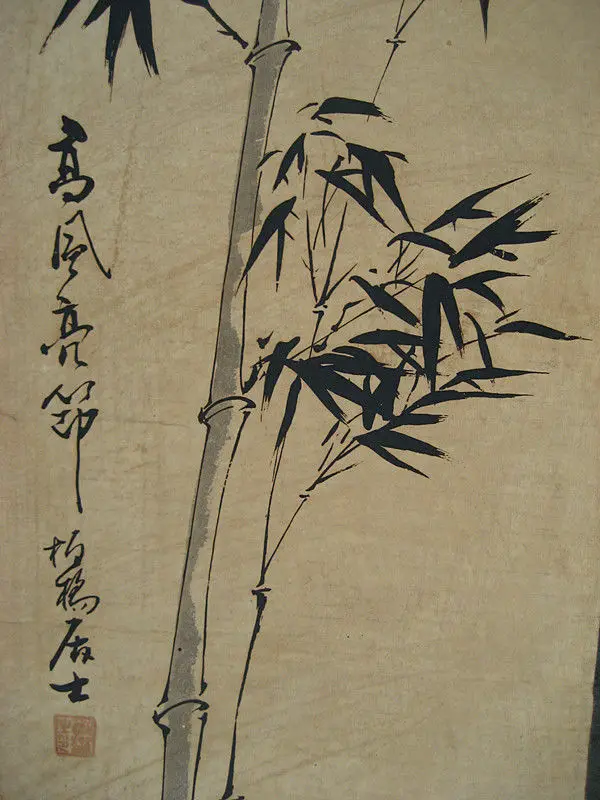 高風亮節
柏橋居士